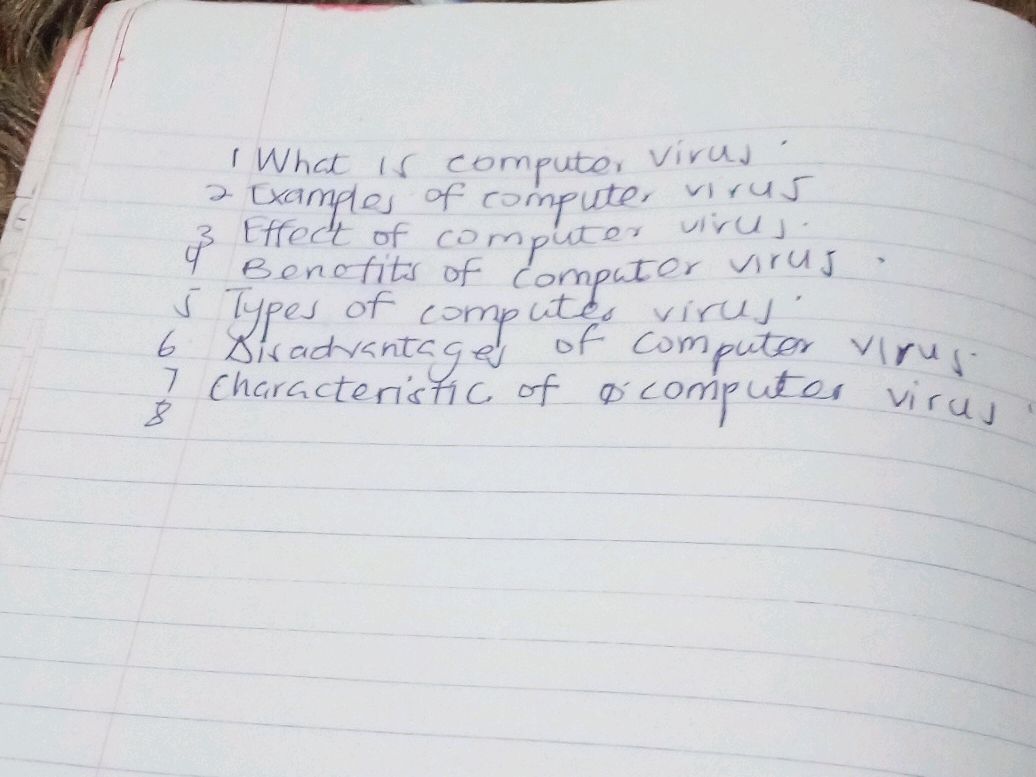 1 What is computer virus.
2 Examples of computer virus
3 Effect of computer virus.
4 Benefits of computer virus.
5 Types of computer virus.
6 Disadvantages of computer virus.
7 Characteristic of computer virus.
8